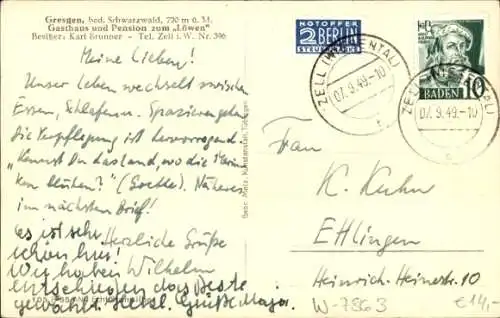 Gresgen, bad. Schwarzwald, 720 m ü. M.
Gasthaus und Pension zum „Löwen"
Besitzer: Karl Brunner - Tel. Zell i. W. Nr. 396
Meine Lieben!
Unser Leben wechselt zwischen
Essen, Schlafen u. Spazierengehen
die Verpflegung ist hervorragend.
„Kennst Du das Land, wo die
blühen?" (Goethe). Näheres
im nächsten Brief!
Herzliche Grüße
Wilhelm
Es ist sehr
schön hier!
Wir haben
entschieden das Beste
gewählt. Herzl. Grüße
NOTOPFER
2 BERLIN
STEUERMARKE
ZELL (WIESENTAL)
07.9.49.-10
BADEN 10
ZELL (WIESENTAL)
07.9.49.-10
An
K. Kuhn
Ettlingen
Heinrich-Heinestr. 10
W-7563
€14,-